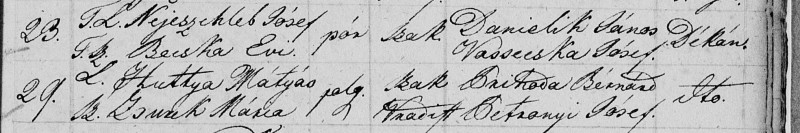 23. T.L. Nejeschleb Jósef pór szak. Danielik János Dékán.
T.B. Becska Evi. Vassecska Josef.
29. L. Huttya Mátyás polg. szak Prihoda Bérnárd Ito.
B. Mária Hradist Petranyi Josef.